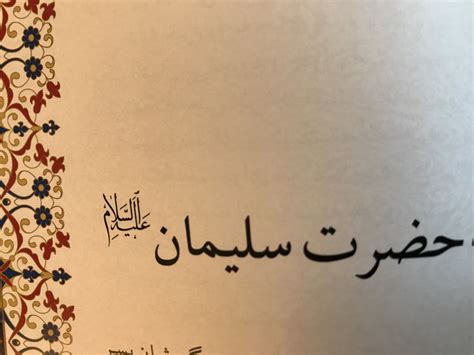 حضرت سلیمان علیه السلام